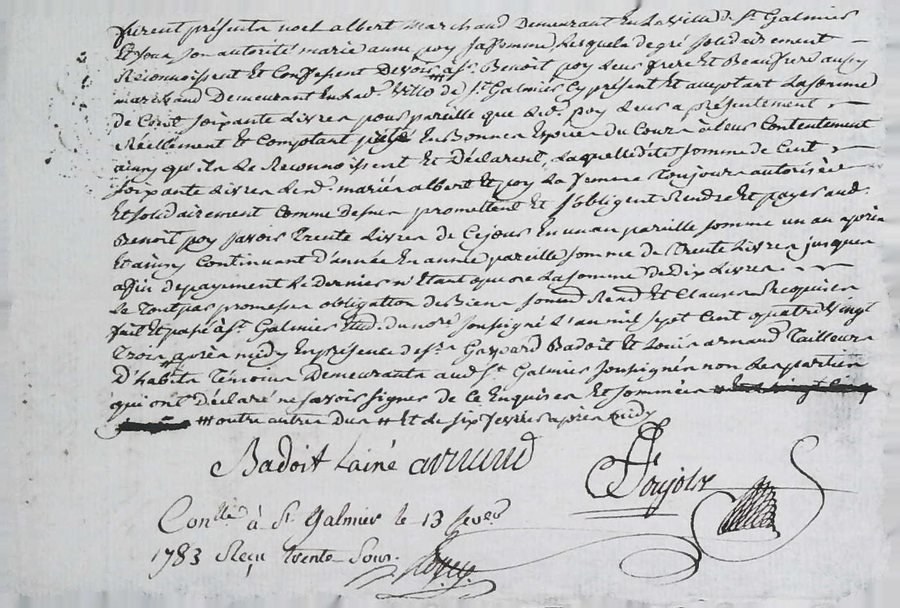 furent présents noel albert marchand Demeurant en La ville de St. Galmier
Et sous son autorité marie anne poy sa femme Lesquels de gré solidairement
Reconnoissent et Confessent Devoir à Sr. Benoit poy Leur frere Et Beaufrere aussy
marchand Demeurant en Lad. Ville de St. Galmier Cy présent Et acceptant La somme
de Cent soixante Livres pour pareille que led. poy Leur a présentement
Réellement et Comptant en Bonnes Espèces du Cours à Leur Contentement
ainsy qu'ils Le Reconnoissent Et Déclarent, Laquelle dite somme de Cent
soixante Livres Lesd. mariés albert Et poy La femme toujours autorisée
Et solidairement Comme dessus promettent Et s'obligent Rendre Et payer aud.
Benoit poy savoir Trente Livres de Ce jour En un an pareille somme un an après
Et ainsy Continuant d'année En année pareille somme de Trente Livres jusques
affin de payement Le dernier n'Etant que de La somme de dix Livres
Le Tout par promesse obligation de Biens soumis Rend Et Clauses Requises
fait Et passé à St. Galmier Etud. du nore. soussigné L'an mil sept Cent quatre Vingt
Trois après midy En présence de Sr. Gaspard Badoit Et Louis armand Tailleur
D'habits Témoins Demeurants aud. St. Galmier soussignés non Les parties
qui ont déclaré ne savoir signer de Ce Enquises Et sommées
outre autre Et de six fevrier après midy
Badoit Lainé armand
Poujols
Conllé à St. Galmier le 13 fevrr
1783 Reçu trente Sous.